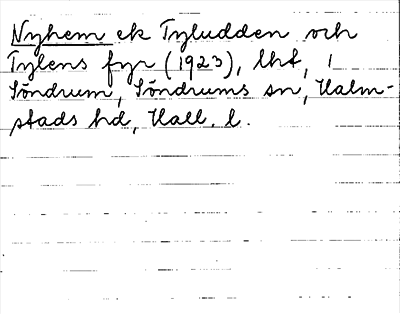 Nyhem ek Tyludden och
Tylens fyr (1923), lht, 1
Söndrum, Söndrums sn, Halm-
stads hd, Hall. l.